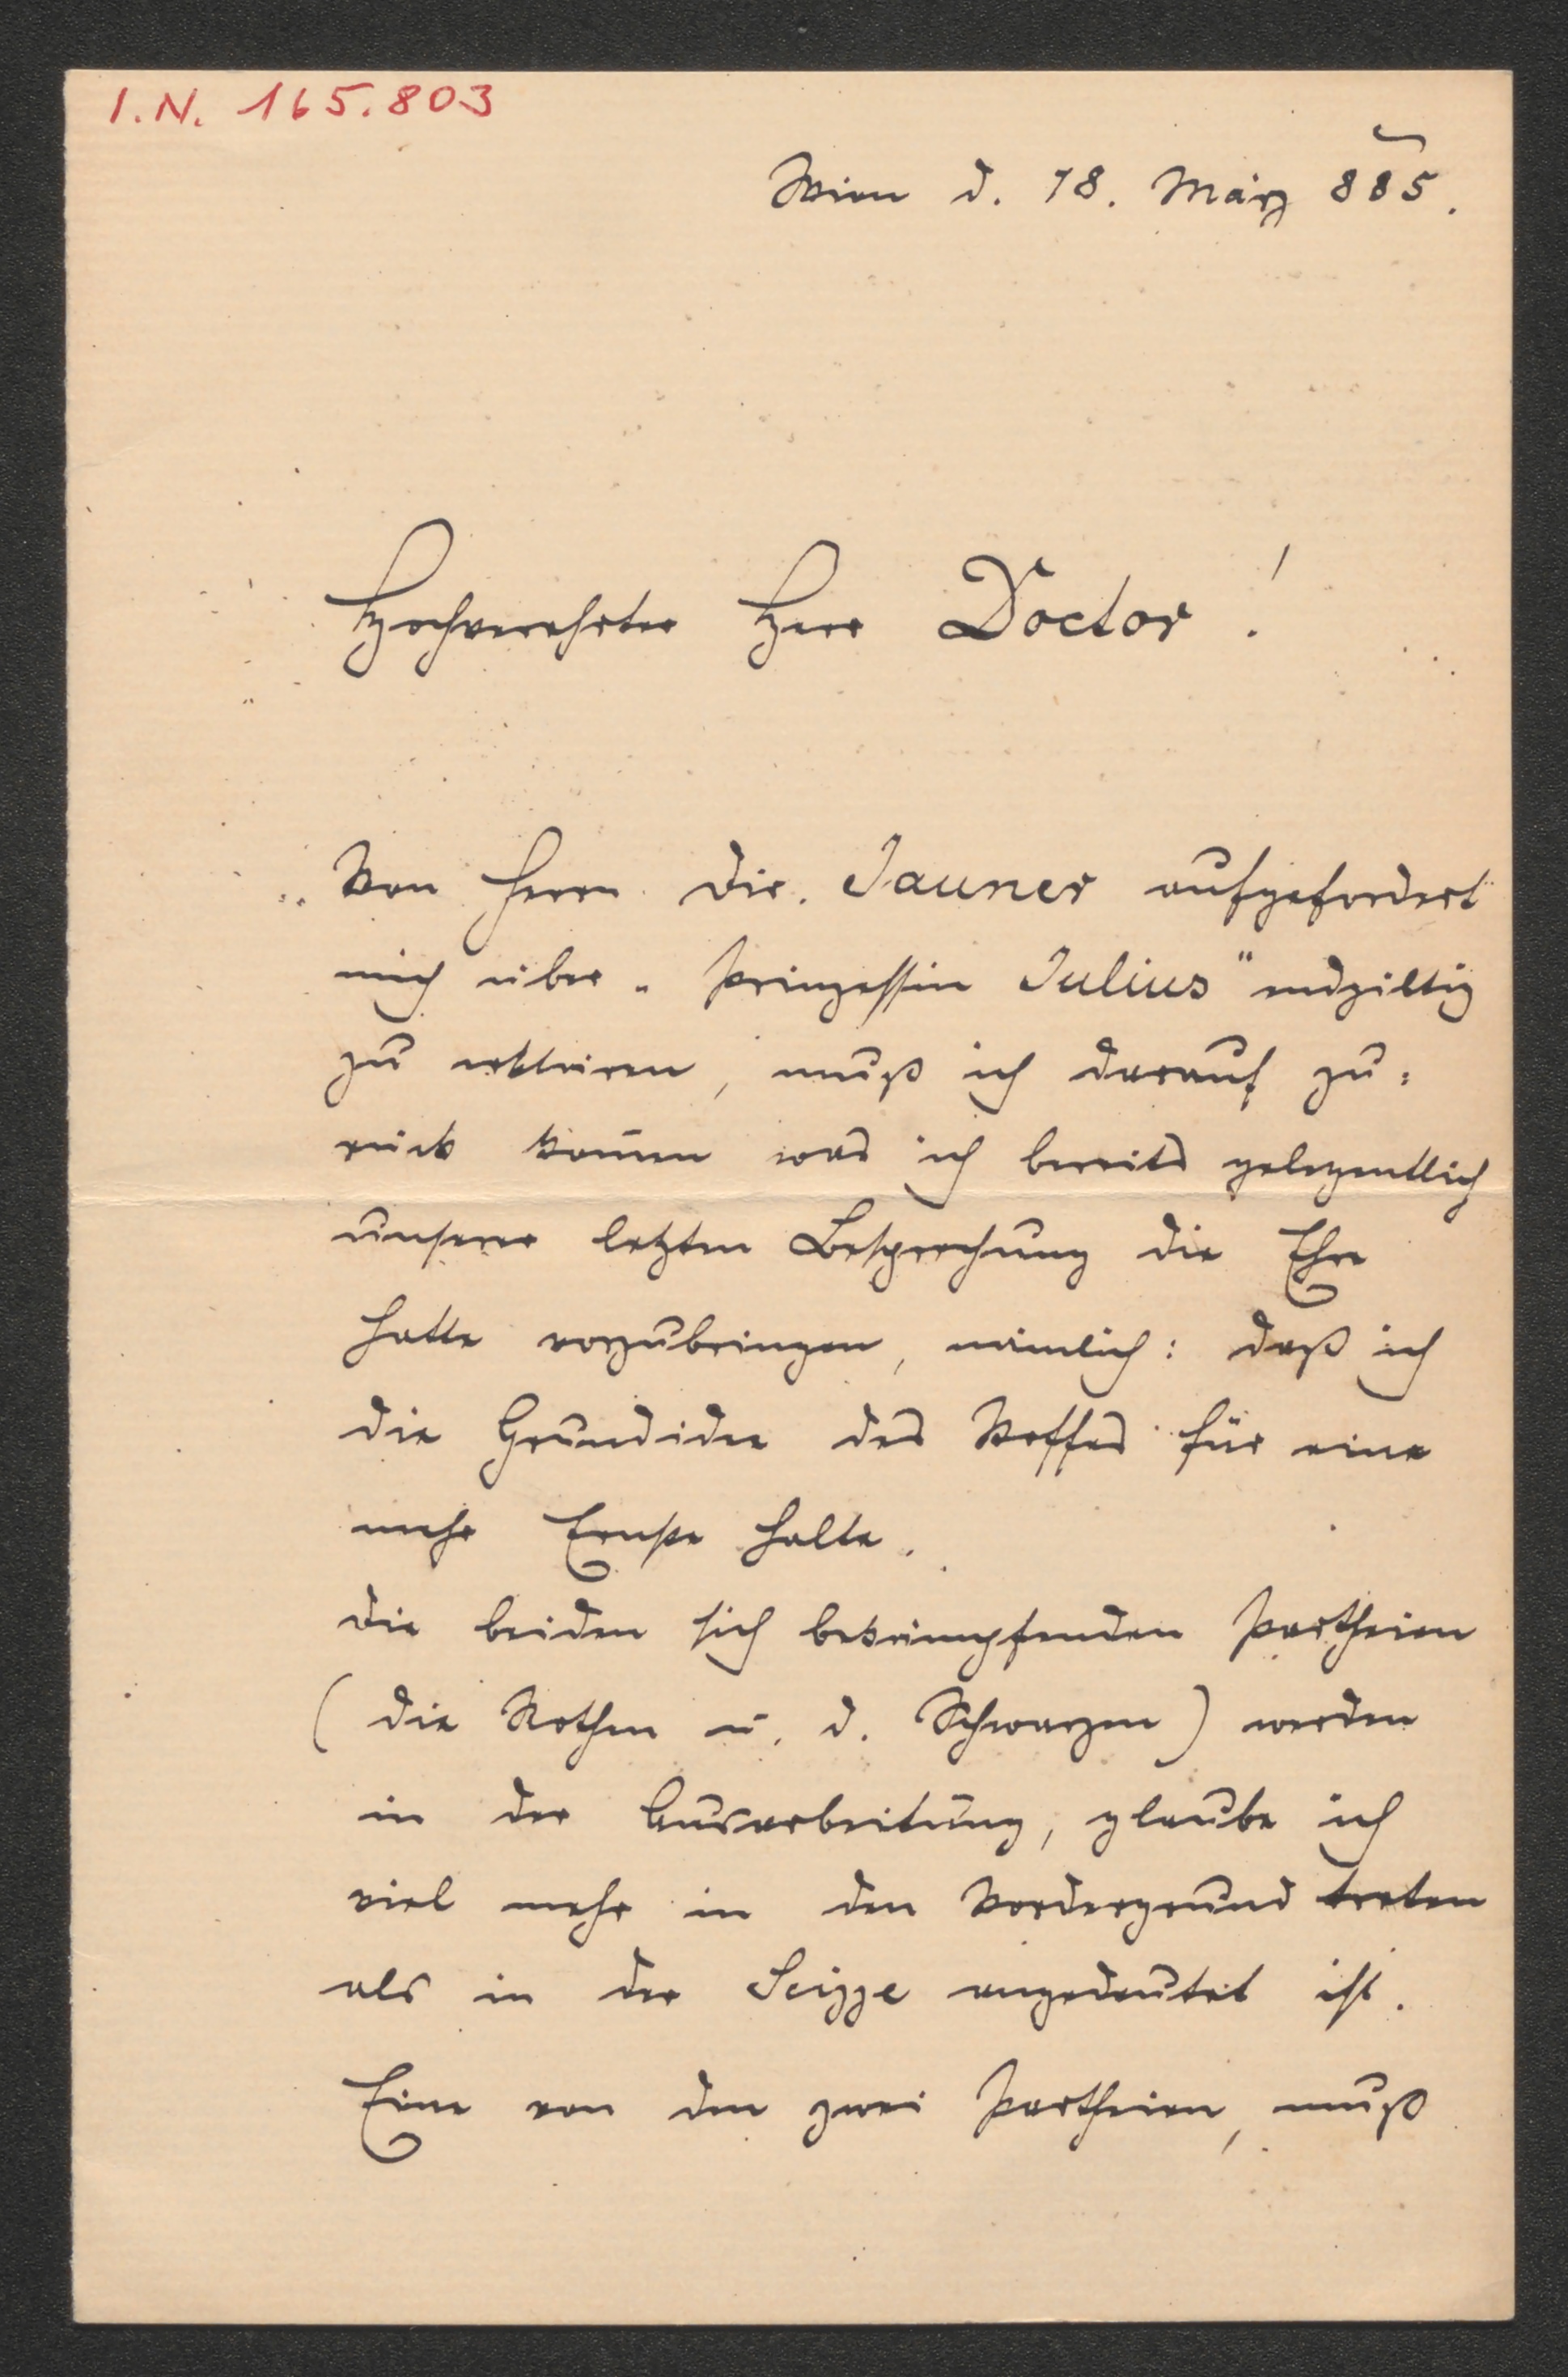 I.N. 165.803
Wien d. 18. März 885.
Hochverehrter Herr Doctor!
Von Herrn Dir. Jauner aufgefordert
mich über „Prinzessin Julius" endgiltig
zu erklären, muß ich darauf zu=
rück kom̄en was ich bereits gelegentlich
unserer letzten Besprechung die Ehre
hatte vorzubringen, nämlich: daß ich
die Grundidee des Stoffes für eine
mehr Ernste halte.
Die beiden sich bekämpfenden Partheien
(die Rothen u. d. Schwarzen) werden
in der Ausarbeitung, glaube ich
viel mehr in den Vordergrund treten
als in der Scizze angedeutet ist.
Eine von den zwei Partheien, muß